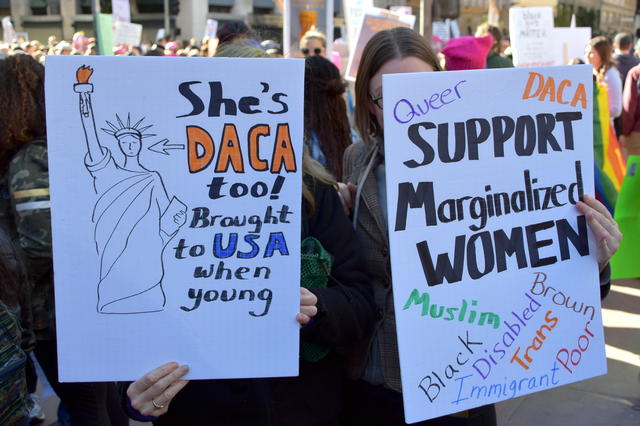 She's
DACA
too!
Brought
to USA
when
young
Queer
DACA
SUPPORT
Marginalized
WOMEN
Muslim
Brown
Disabled
Black
Trans
Poor
Immigrant